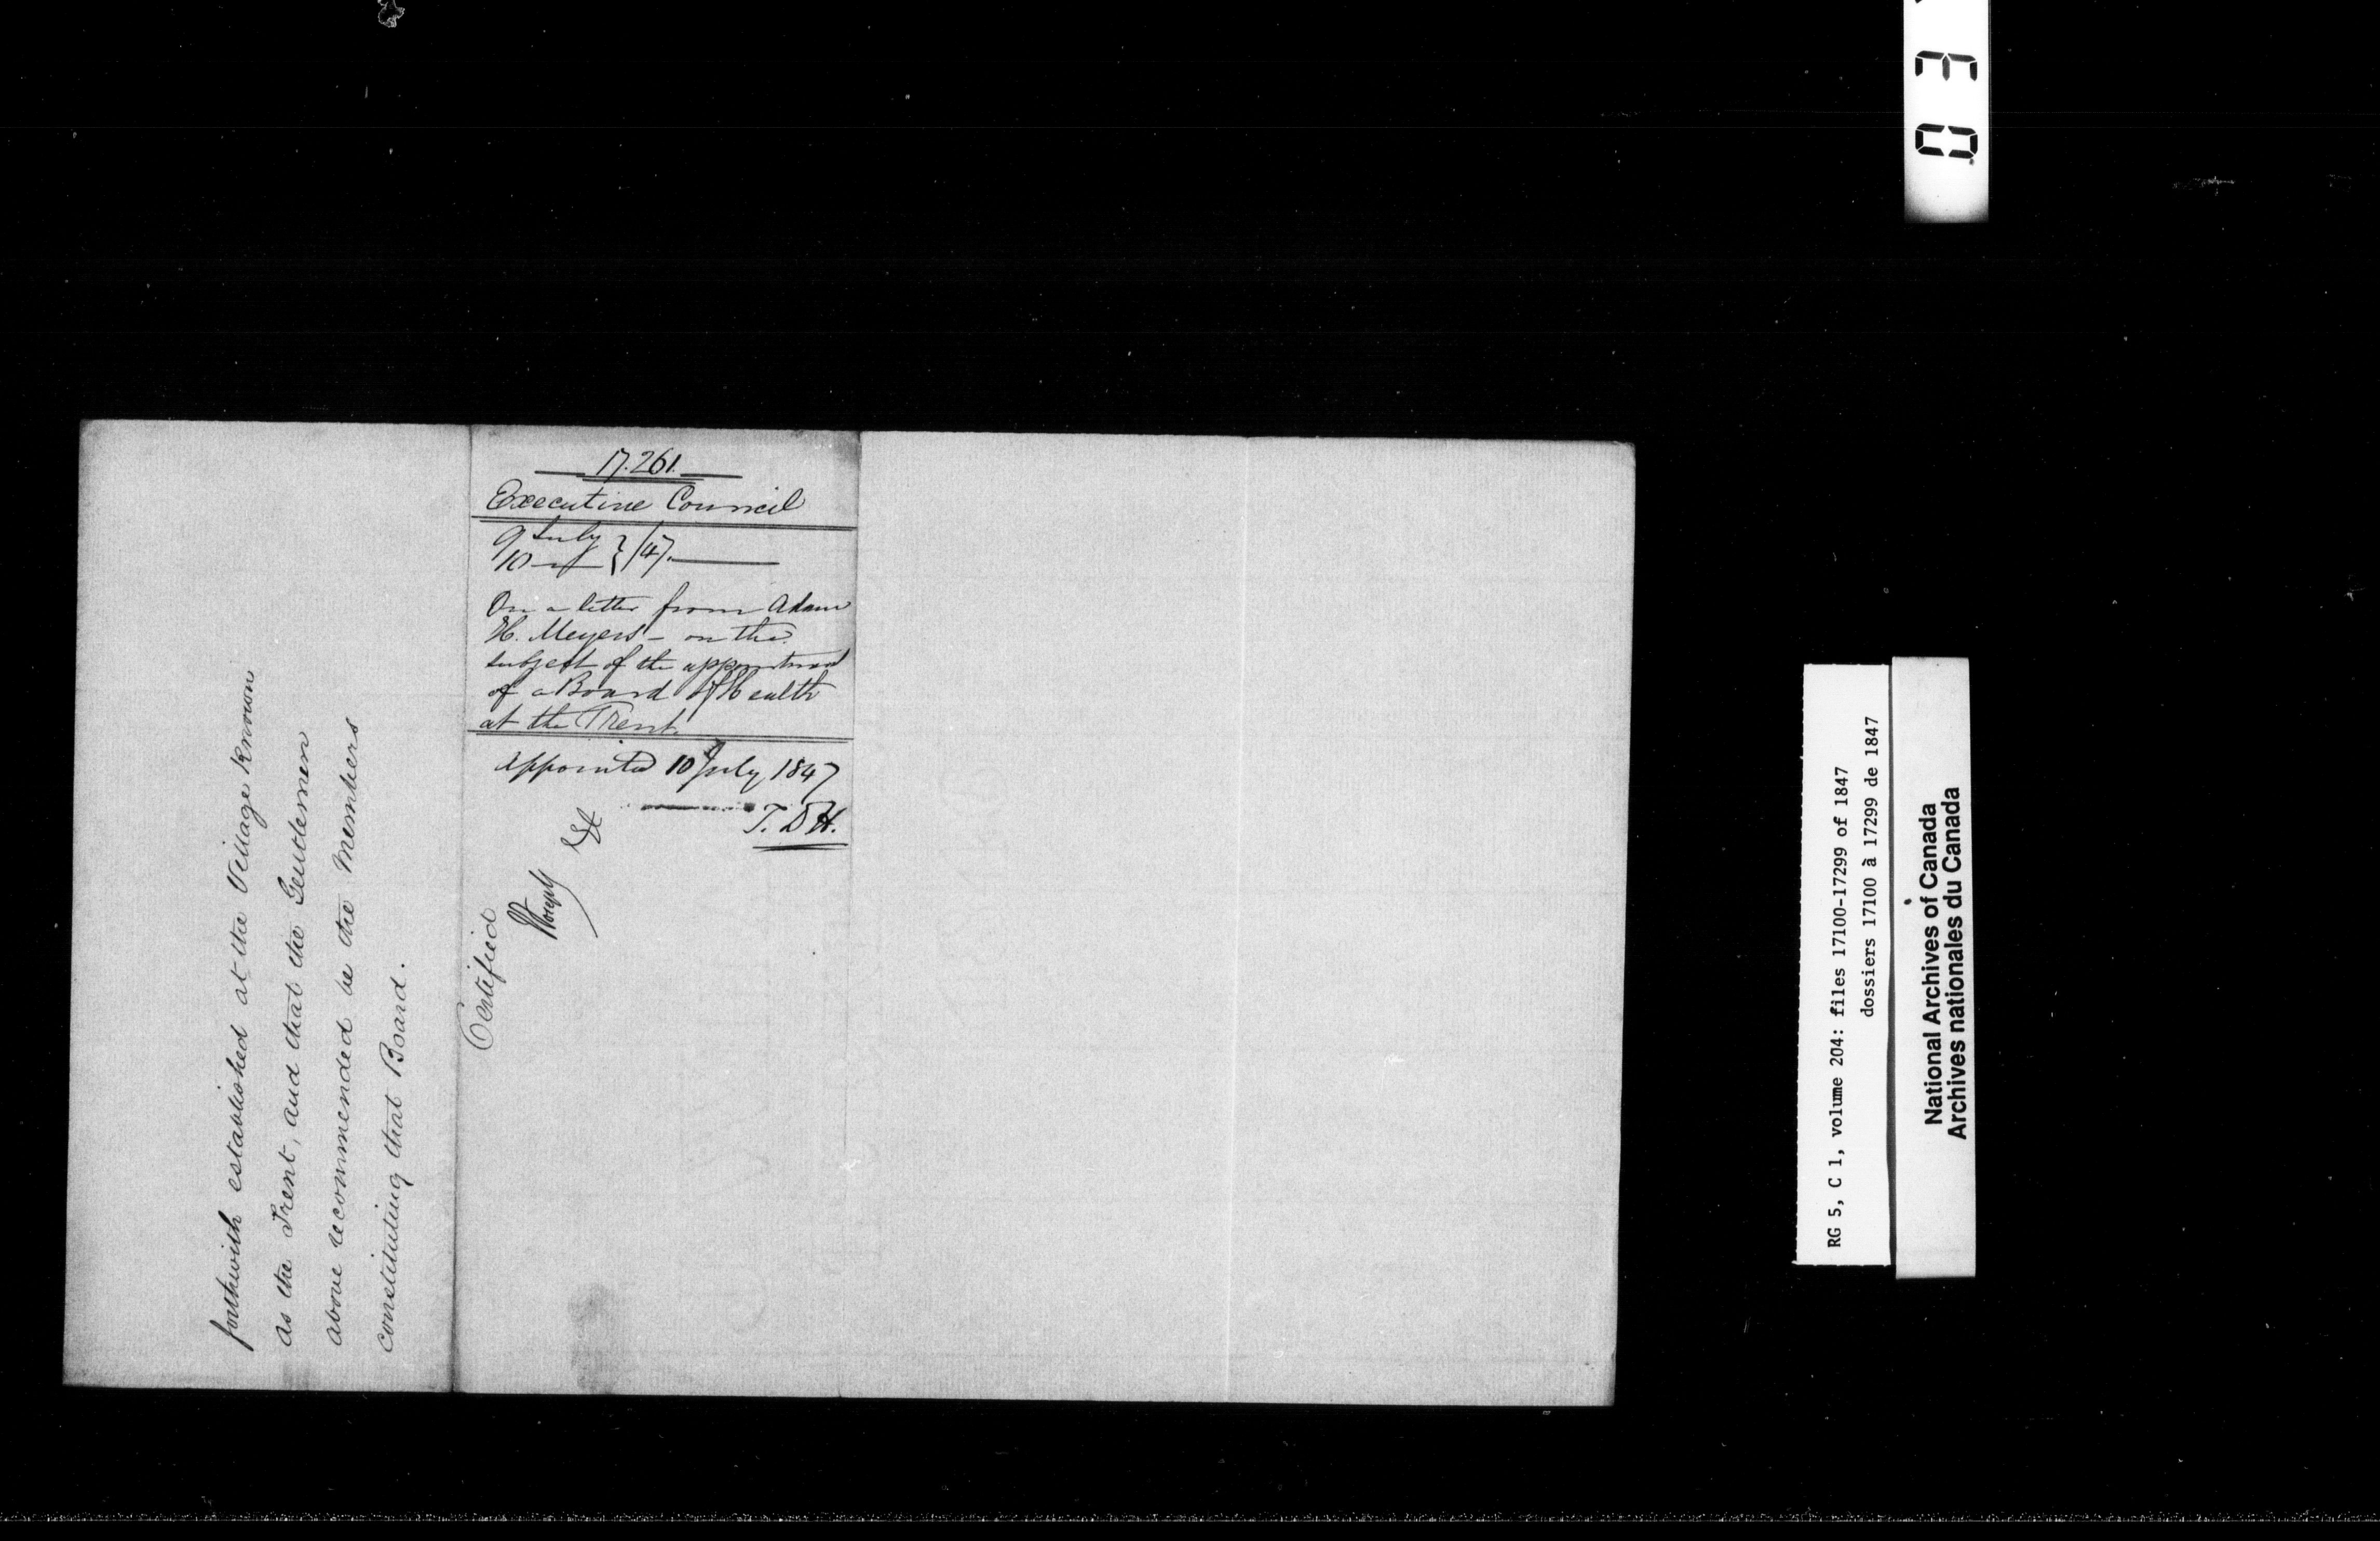 forthwith established at the Village known
as the Trent, and that the Gentlemen
above recommended be the Members
constituting that Board.
Certified
17.261.
Executive Council
9 July
10 } /47.
On a letter from Adam
H. Meyers - on the
subject of the appointment
of a Board of Health
at the Trent
Appointed 10 July 1847
T. D H.
RG 5, C 1, volume 204: files 17100-17299 of 1847
dossiers 17100 à 17299 de 1847
National Archives of Canada
Archives nationales du Canada
03